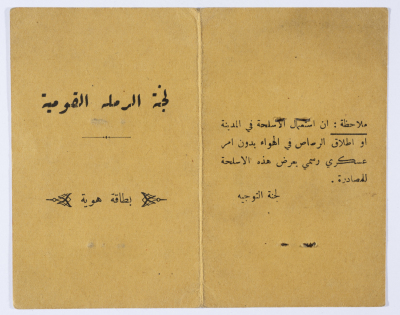 لجنة الرملة القومية
بطاقة هوية
ملاحظة : ان استعمال الاسلحة في المدينة
او اطلاق الرصاص في الهواء بدون امر
عسكري رسمي يعرض هذه الاسلحة
للمصادرة .
لجنة التوجيه